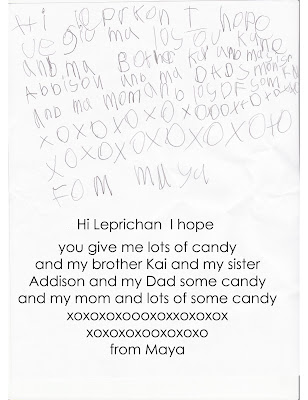 Hi leprkon I hope
ue giv ma los ou kane
anb ma Bother kai and ma sis
Addison and ma DADS
anb ma mom anb los OF som
xoxoxoxoooxoxo
xoxoxoxoxoxoto
xoxoxoxoxox
Fom maya
Hi Leprichan I hope
you give me lots of candy
and my brother Kai and my sister
Addison and my Dad some candy
and my mom and lots of some candy
xoxoxoxoooxoxxoxoxox
xoxoxoxooxoxoxo
from Maya